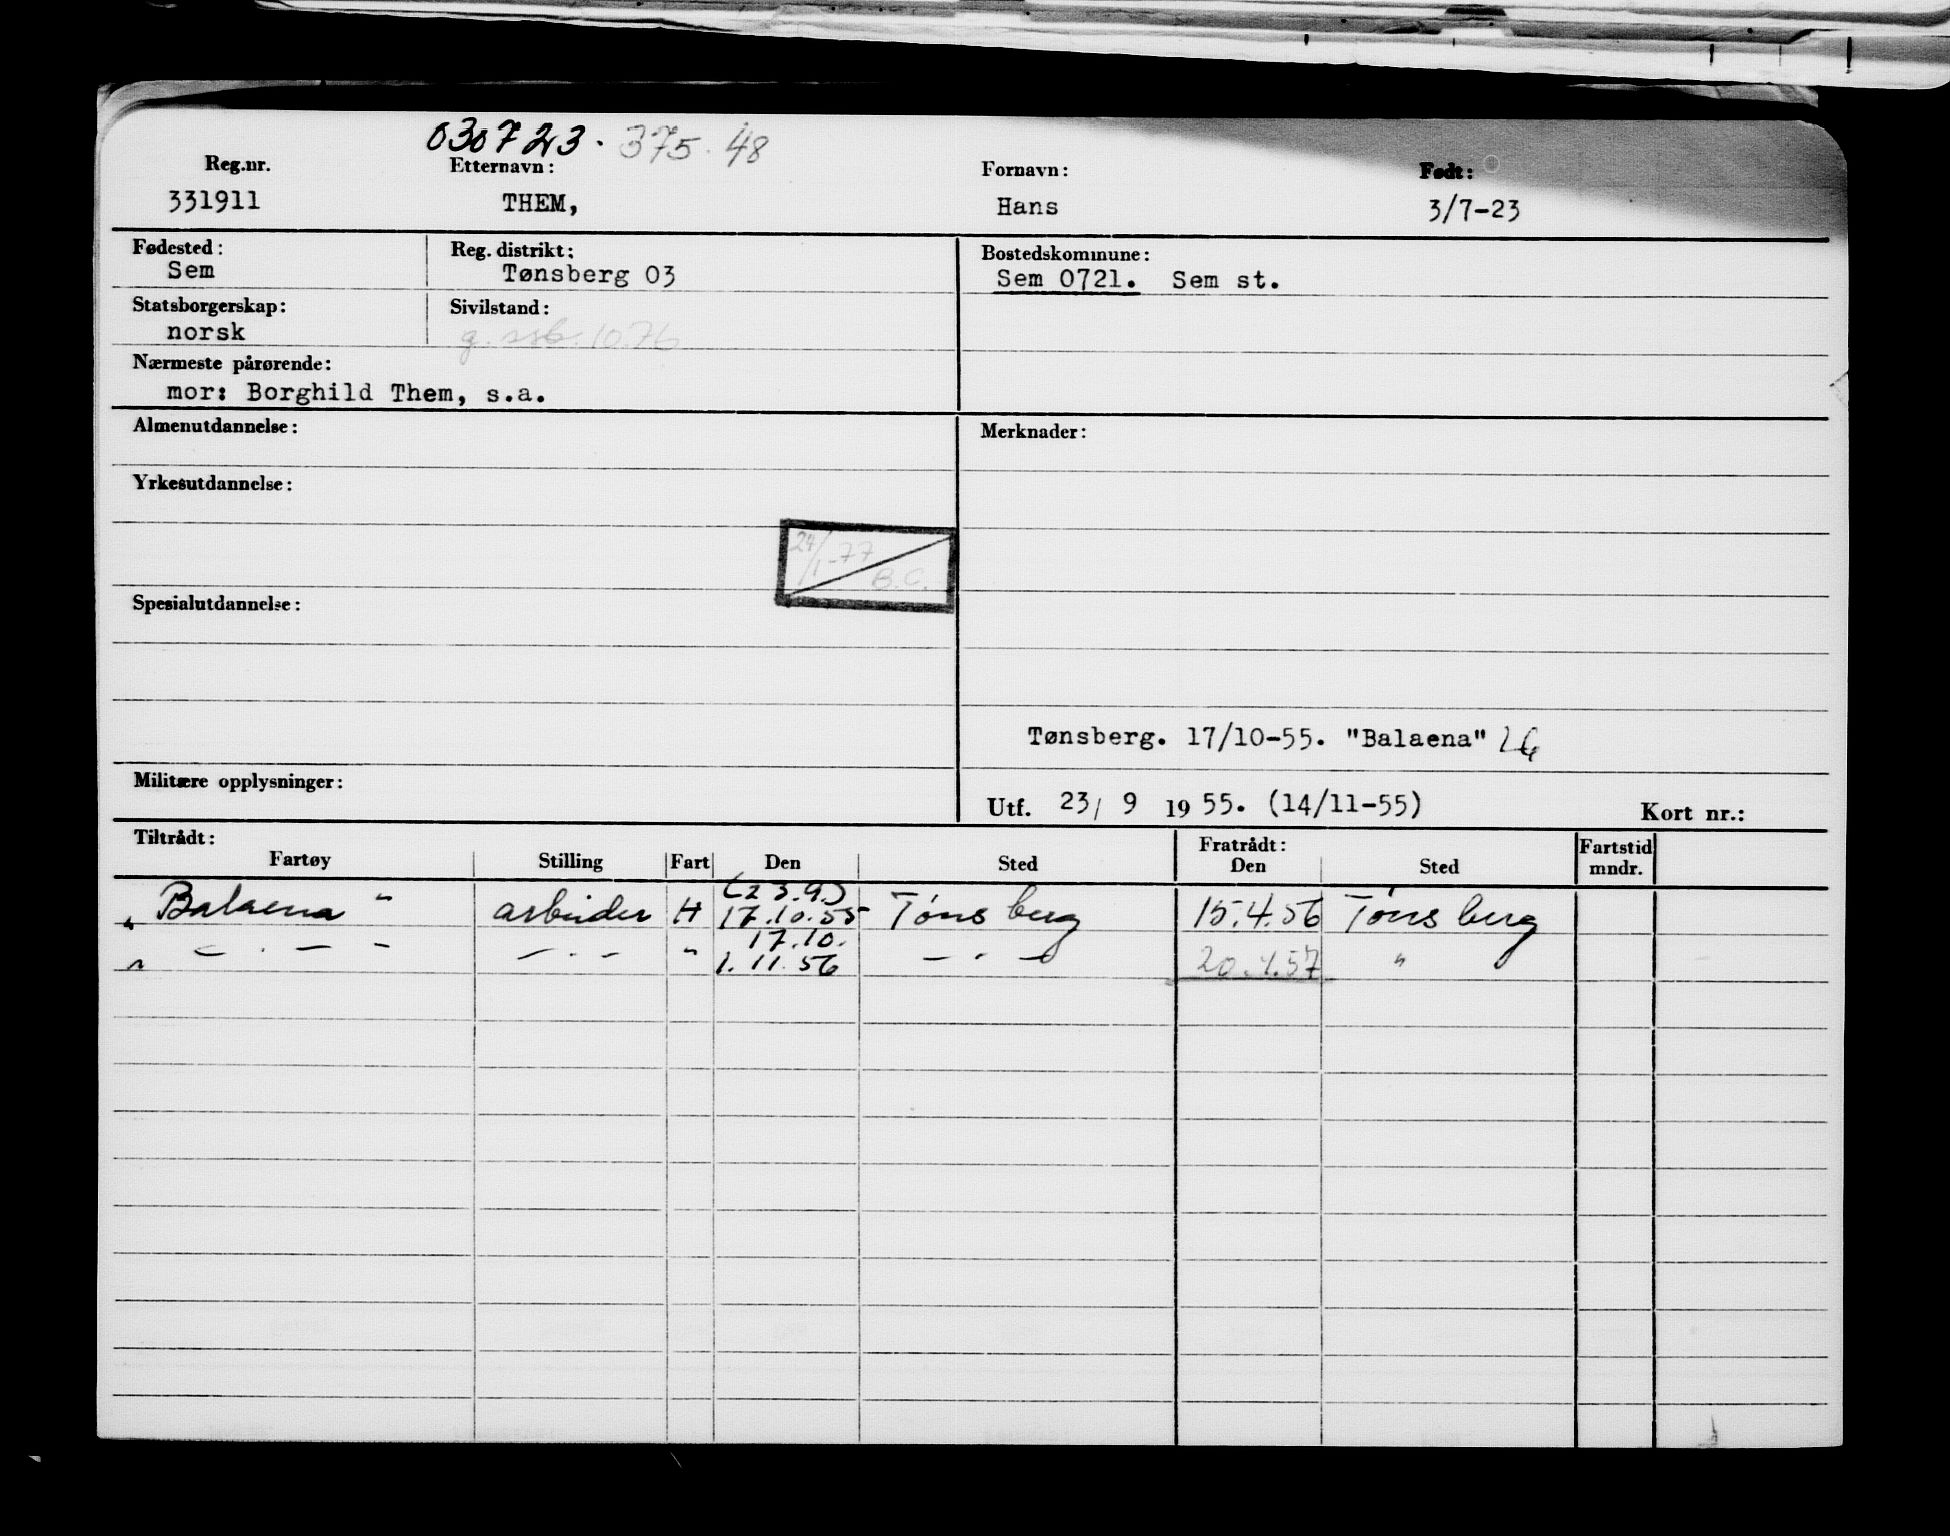 030723. 375.48
Reg.nr. Etternavn: Fornavn: Født:
331911 THEM, Hans 3/7-23
Fødested: Reg. distrikt: Bostedskommune:
Sem Tønsberg 03 Sem 0721. Sem st.
Statsborgerskap: Sivilstand:
norsk g. ssb. 10.76
Nærmeste pårørende:
mor: Borghild Them, s.a.
Almenutdannelse: Merknader:
Yrkesutdannelse:
24/1-77
B.C.
Spesialutdannelse:
Tønsberg. 17/10-55. "Balaena"
Militære opplysninger:
Utf. 23/ 9 1955. (14/11-55) Kort nr.:
Tiltrådt: Fratrådt: Fartstid
Fartøy Stilling Fart Den Sted Den Sted mndr.
(23.9.)
"Balaena" arbeider H 17.10.55 Tønsberg 15.4.56 Tønsberg
17.10.
" — . — " — . — " 1.11.56 — " — 20.4.57 "